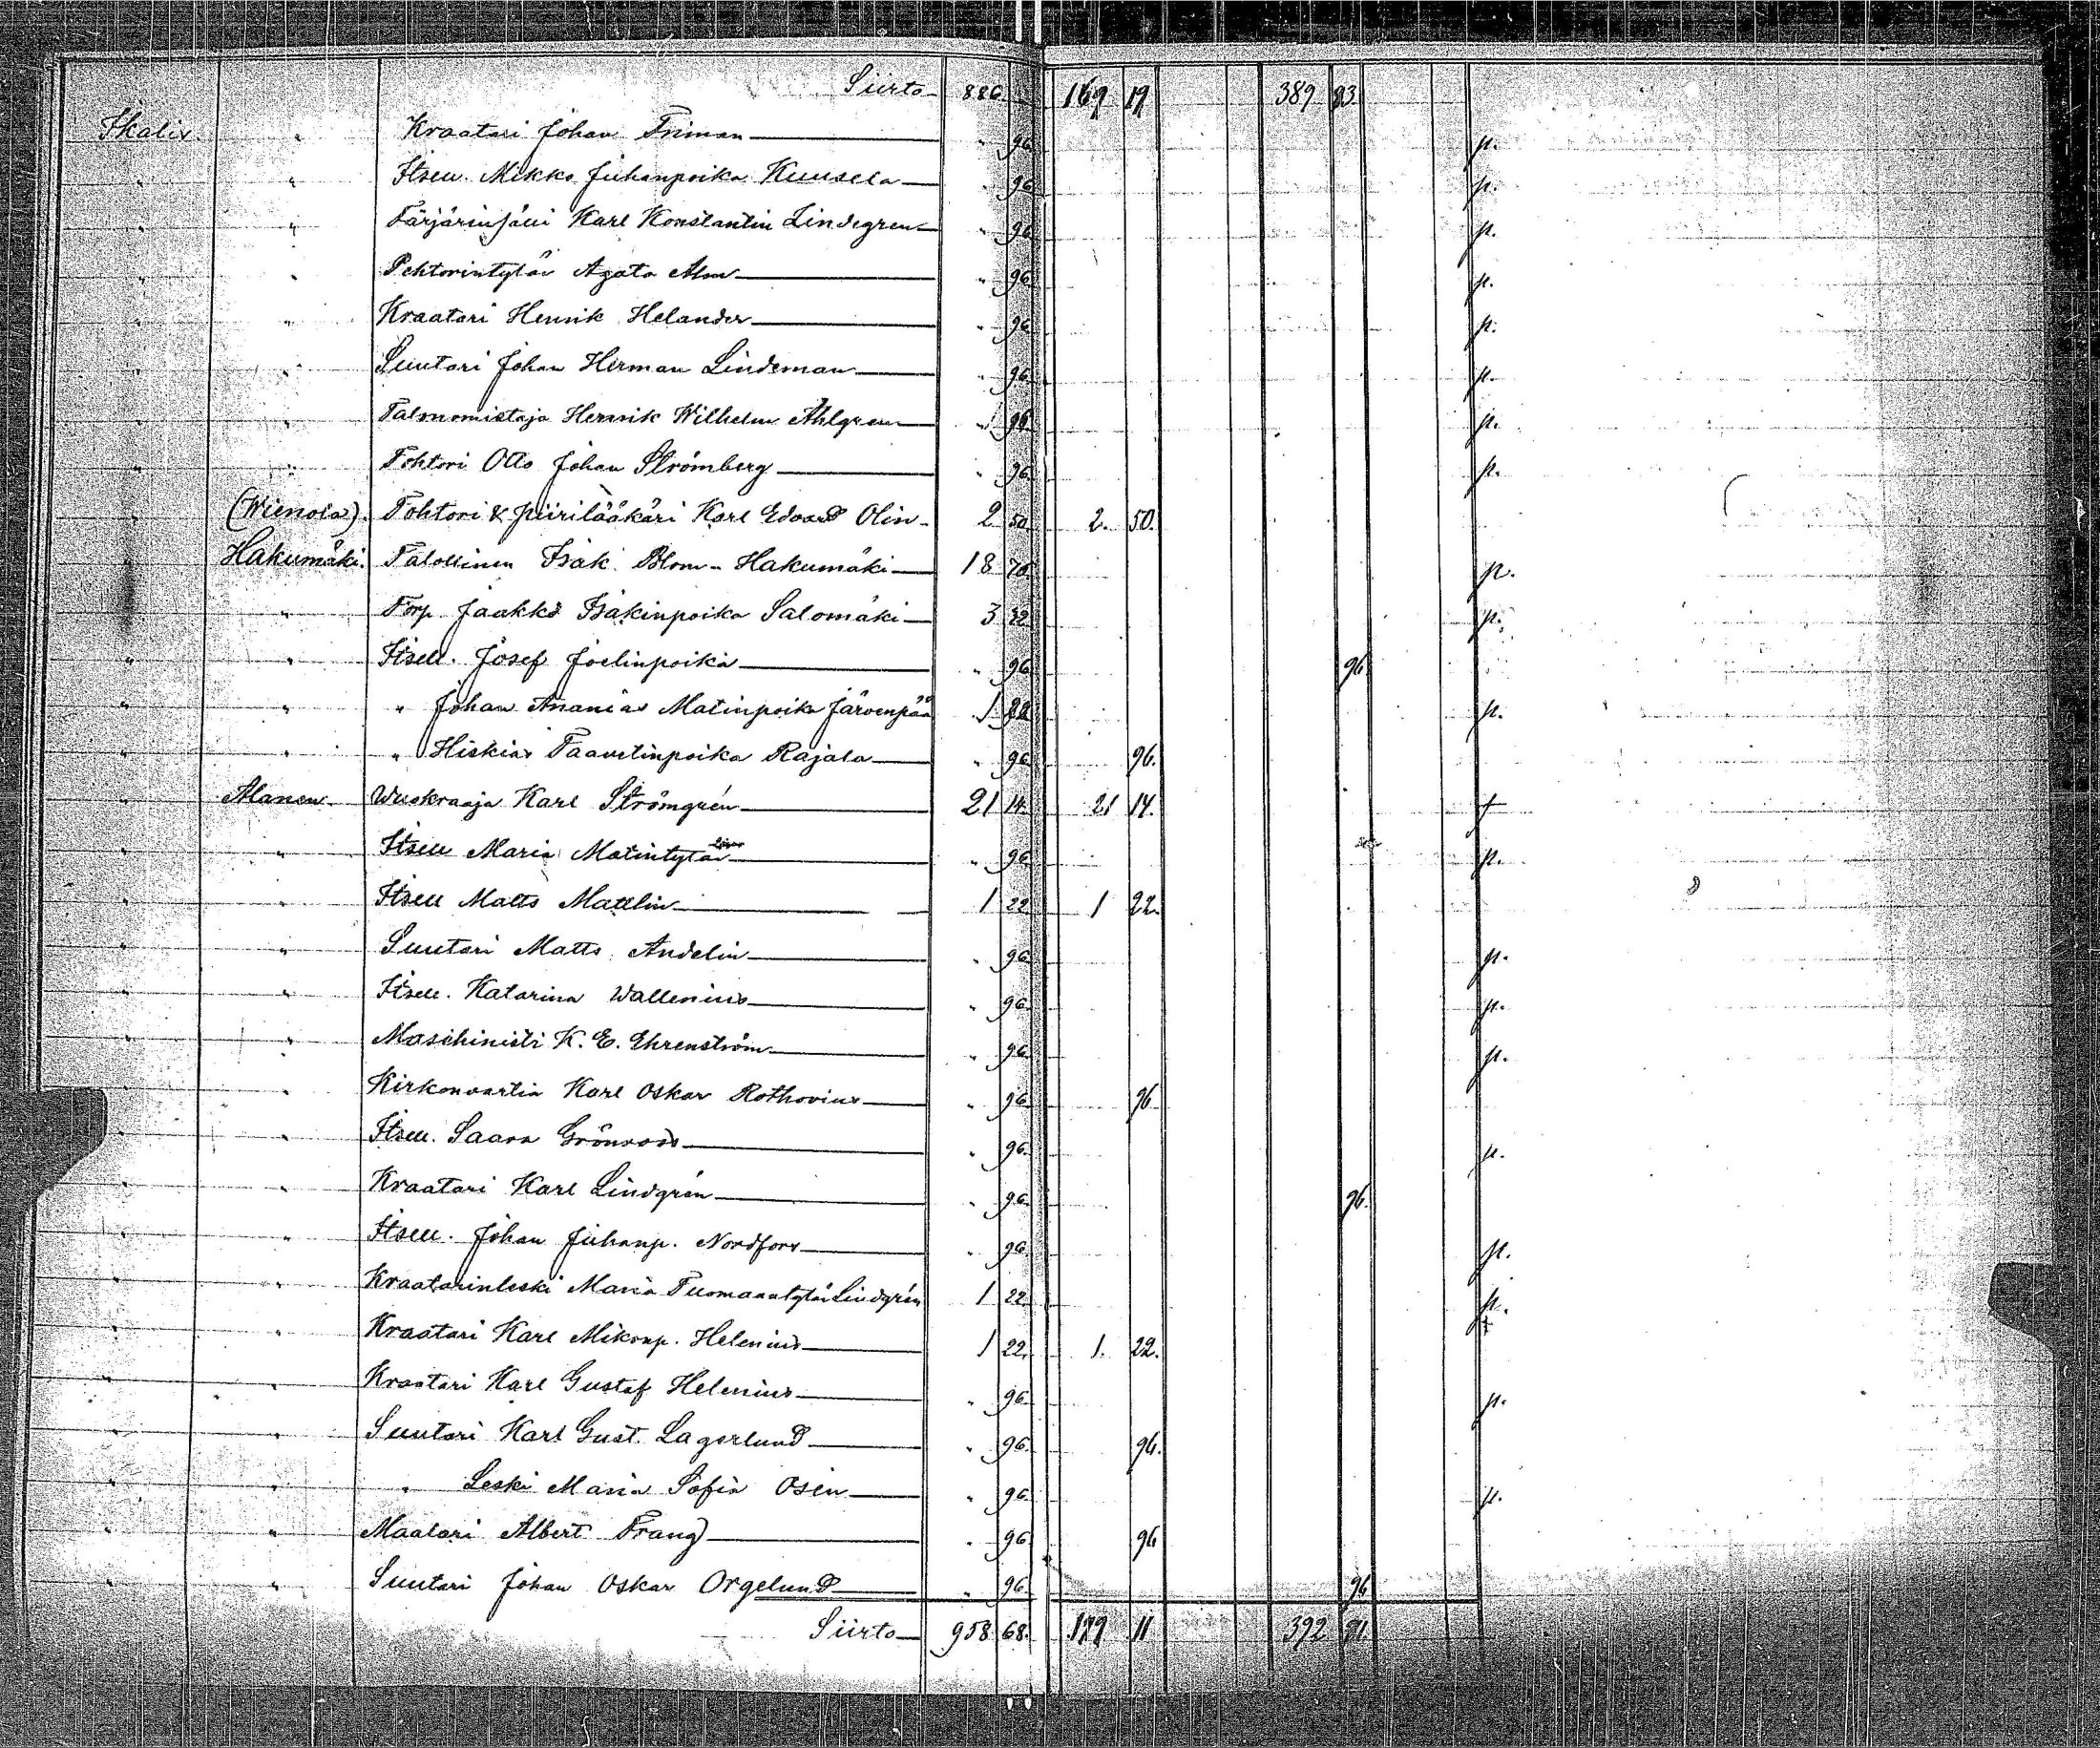 Siirto 886 169 19 389 93
Ikalis " Kraatari Johan Friman " 96 p.
" " Itsell. Mikko Juhanpoika Kuusela " 96 p.
" " Värjärinsälli Karl Konstantin Lindegren " 96 p.
" " Pehtorintytär Agata Alm " 96 p.
" " Kraatari Henrik Helander " 96 p.
" " Suutari Johan Herman Lindeman " 96 p.
" " Talonomistaja Henrik Wilhelm Ahlgren 96 p.
" " Tohtori Otto Johan Strömberg " 96 p.
" (Wienola). Tohtori & piirilääkäri Karl Edvard Olin 2 50 2. 50.
" Hakumäki. Talollinen Isak Blom-Hakumäki 18 70 p.
" " Torp Jaakko Isakinpoika Salomäki 3 p.
" " Itsell. Josef Joelinpoika " 96 96
" " " Johan Ananias Matinpoika Järvenpää 1 22 p.
" " " Hiskias Taavetinpoika Rajala " 96 96.
" Alanen Wuokraaja Karl Strömgrén 21 14. 21 14.
" " Itsell Maria Matintytär " 96 p.
" " Itsell Matts Mattlin 1 22 1 22.
" " Suutari Matts Andelin " 96 p.
" " Itsell. Katarina Wallenius " 96 p.
" " Maschinisti K. E. Ehrenström " 96 p.
" " Kirkonvartia Karl Oskar Rothovius " 96 96
" " Itsell. Saara Grönroos " 96 p.
" " Kraatari Karl Lindgrén " 96 96.
" " Itsell. Johan Juhanp. Nordfors " 96 p.
" " Kraatarinleski Maria Tuomaantytär Lindgrén 1 22 p.
" " Kraatari Karl Mikonp. Helenius 1 22. 1. 22.
" " Kraatari Karl Gustaf Helenius " 96 p.
" " Suutari Karl Gust. Lagerlund " 96 96.
" " " Leski Maria Sofia Osén " 96 p.
" " Maalari Albert Frang " 96 96
" " Suutari Johan Oskar Orgelund " 96. 96
Siirto 958 68. 11 392